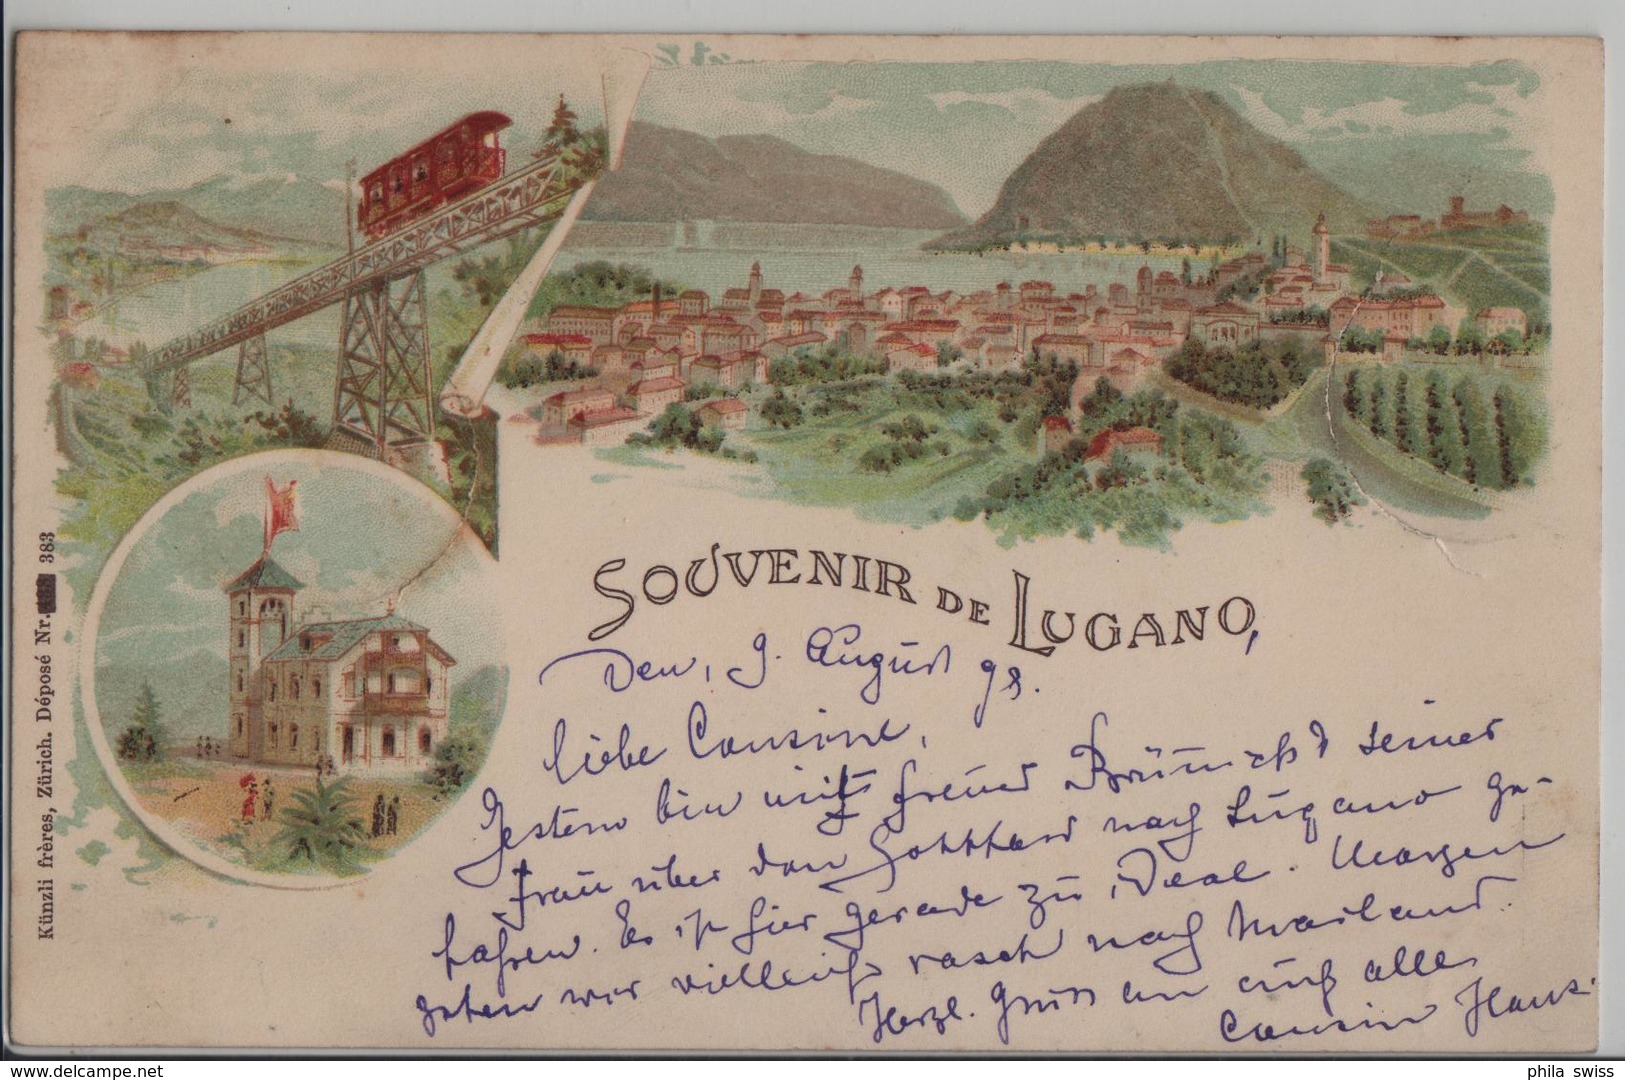 SOUVENIR DE LUGANO
Den, 9. August 98.
liebe Cousine,
Gestern bin mit Freund Brünich & seiner
Frau über den Gotthard nach Lugano ge-
fahren. Es ist hier gerade zu ideal. Morgen
gehen wir vielleicht rasch nach Mailand.
Herzl. Gruss an euch alle
Cousin Hans.
Künzli frères, Zürich. Déposé Nr. 383
phila swiss